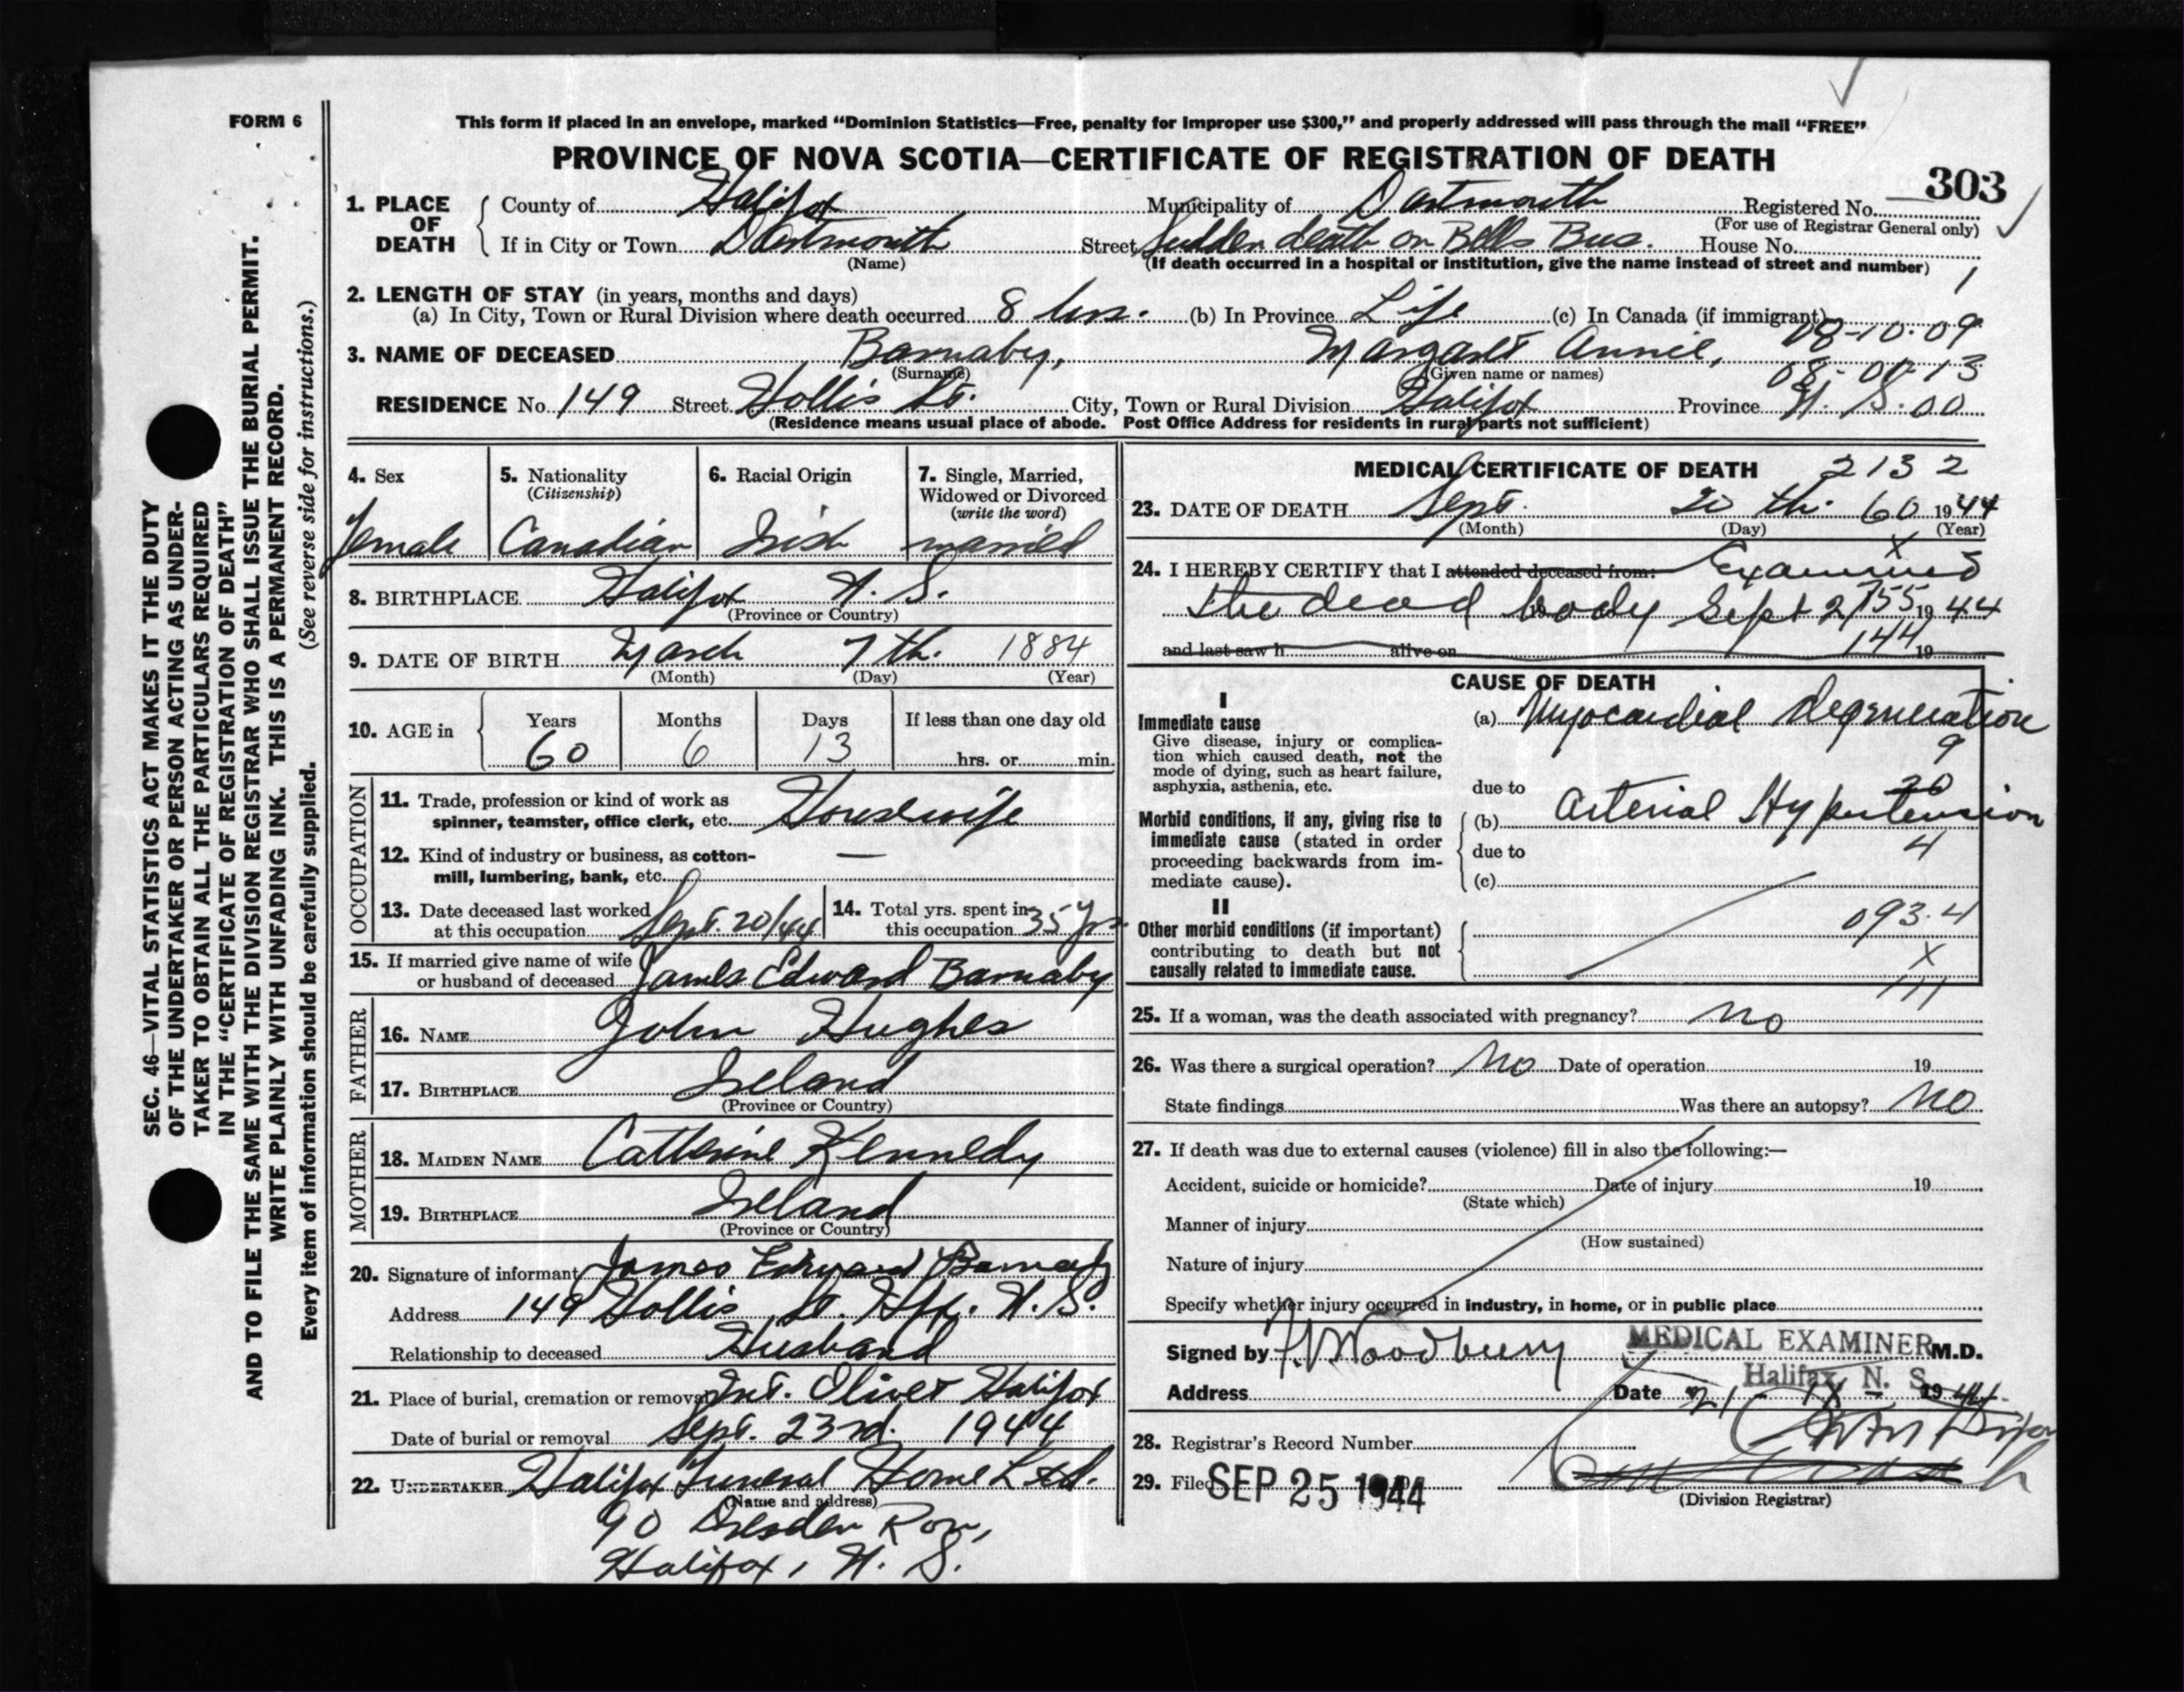 FORM 6
This form if placed in an envelope, marked “Dominion Statistics—Free, penalty for improper use $300,” and properly addressed will pass through the mail “FREE”
PROVINCE OF NOVA SCOTIA—CERTIFICATE OF REGISTRATION OF DEATH
303
1. PLACE OF DEATH
County of Halifax Municipality of Dartmouth Registered No.
(For use of Registrar General only)
If in City or Town Dartmouth Street Sudden death on Bells Bus. House No.
(Name) (If death occurred in a hospital or institution, give the name instead of street and number) 1
2. LENGTH OF STAY (in years, months and days)
(a) In City, Town or Rural Division where death occurred 8 hrs. (b) In Province Life (c) In Canada (if immigrant)
08-10-09
3. NAME OF DECEASED Barnaby, Margaret Annie,
(Surname) (Given name or names) 08-01-13
RESIDENCE No. 149 Street Hollis St. City, Town or Rural Division Halifax Province N. S. 00
(Residence means usual place of abode. Post Office Address for residents in rural parts not sufficient)
4. Sex 5. Nationality 6. Racial Origin 7. Single, Married,
(Citizenship) Widowed or Divorced
(write the word)
Female Canadian Irish married
8. BIRTHPLACE Halifax N. S.
(Province or Country)
9. DATE OF BIRTH March 7th. 1884
(Month) (Day) (Year)
10. AGE in Years Months Days If less than one day old
60 6 13 hrs. or min.
OCCUPATION
11. Trade, profession or kind of work as
spinner, teamster, office clerk, etc. Housewife
12. Kind of industry or business, as cotton- —
mill, lumbering, bank, etc.
13. Date deceased last worked
at this occupation Sept. 20/44
14. Total yrs. spent in
this occupation 35 yrs
15. If married give name of wife
or husband of deceased James Edward Barnaby
FATHER
16. NAME John Hughes
17. BIRTHPLACE Ireland
(Province or Country)
MOTHER
18. MAIDEN NAME Catherine Kennedy
19. BIRTHPLACE Ireland
(Province or Country)
20. Signature of informant James Edward Barnaby
Address 149 Hollis St. Hfx. N. S.
Relationship to deceased Husband
21. Place of burial, cremation or removal Mt. Olivet Halifax
Date of burial or removal Sept. 23rd. 1944
22. UNDERTAKER Halifax Funeral Home Ltd.
(Name and address)
90 Dresden Row,
Halifax, N. S.
MEDICAL CERTIFICATE OF DEATH 2132
23. DATE OF DEATH Sept. 20 th. 60 1944
(Month) (Day) (Year)
x
24. I HEREBY CERTIFY that I attended deceased from: Examined
the dead body Sept 21 19 44
155
and last saw h alive on 19
144
CAUSE OF DEATH
I
Immediate cause
Give disease, injury or complica-
tion which caused death, not the
mode of dying, such as heart failure,
asphyxia, asthenia, etc.
(a) Myocardial degeneration
9
due to 20
Morbid conditions, if any, giving rise to
immediate cause (stated in order
proceeding backwards from im-
mediate cause).
(b) Arterial Hypertension
due to 4
(c)
II
Other morbid conditions (if important)
contributing to death but not
causally related to immediate cause.
093.4
x
111
25. If a woman, was the death associated with pregnancy? no
26. Was there a surgical operation? No Date of operation 19
State findings Was there an autopsy? No
27. If death was due to external causes (violence) fill in also the following:—
Accident, suicide or homicide? Date of injury 19
(State which)
Manner of injury
(How sustained)
Nature of injury
Specify whether injury occurred in industry, in home, or in public place
Signed by Woodbury MEDICAL EXAMINER M.D.
Halifax, N. S.
Address Date 21 - IX - 1944
28. Registrar’s Record Number
29. Filed SEP 25 1944
(Division Registrar)
SEC. 46—VITAL STATISTICS ACT MAKES IT THE DUTY
OF THE UNDERTAKER OR PERSON ACTING AS UNDER-
TAKER TO OBTAIN ALL THE PARTICULARS REQUIRED
IN THE “CERTIFICATE OF REGISTRATION OF DEATH”
AND TO FILE THE SAME WITH THE DIVISION REGISTRAR WHO SHALL ISSUE THE BURIAL PERMIT.
WRITE PLAINLY WITH UNFADING INK. THIS IS A PERMANENT RECORD.
Every item of information should be carefully supplied. (See reverse side for instructions.)